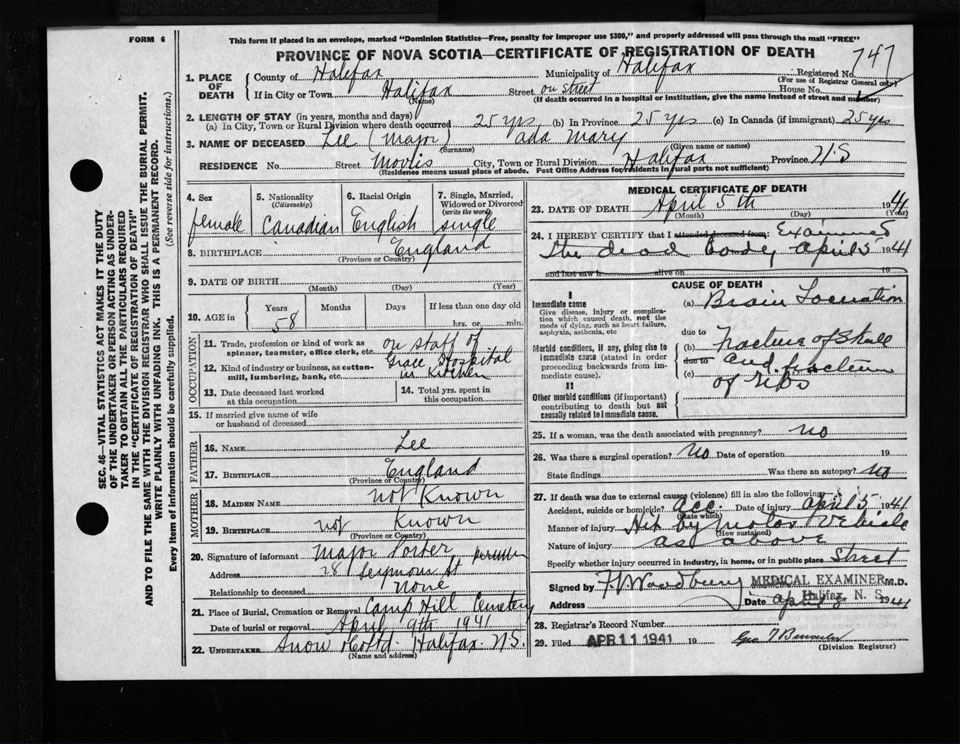 FORM 6
This form to be placed in an envelope, marked "Dominion Statistics—Free, penalty for improper use $300," and properly addressed will pass through the mail "FREE"
PROVINCE OF NOVA SCOTIA—CERTIFICATE OF REGISTRATION OF DEATH
SEC. 46—VITAL STATISTICS ACT MAKES IT THE DUTY
OF THE UNDERTAKER OR PERSON ACTING AS UNDER-
TAKER TO OBTAIN ALL THE PARTICULARS REQUIRED
IN THE "CERTIFICATE OF REGISTRATION OF DEATH"
AND TO FILE THE SAME WITH THE DIVISION REGISTRAR WHO SHALL ISSUE THE BURIAL PERMIT.
WRITE PLAINLY WITH UNFADING INK. THIS IS A PERMANENT RECORD.
Every item of information should be carefully supplied. (See reverse side for instructions.)
1. PLACE OF DEATH County of Halifax Municipality of Halifax Registered No. 747
(For use of Registrar General only)
If in City or Town Halifax Street on Street House No.
(Name) (If death occurred in a hospital or institution, give the name instead of street and number)
2. LENGTH OF STAY (in years, months and days)
(a) In City, Town or Rural Division where death occurred 25 yrs (b) In Province 25 yrs (c) In Canada (if immigrant) 25 yrs
3. NAME OF DECEASED Lee (Major) Ada Mary
(Surname) (Given name or names)
RESIDENCE No. Street Morris City, Town or Rural Division Halifax Province N.S
(Residence means usual place of abode. Post Office Address for residents in rural parts not sufficient)
4. Sex female
5. Nationality (Citizenship) Canadian
6. Racial Origin English
7. Single, Married, Widowed or Divorced (write the word) single
8. BIRTHPLACE England
(Province or Country)
9. DATE OF BIRTH
(Month) (Day) (Year)
10. AGE in Years 58 Months Days If less than one day old hrs. or min.
OCCUPATION
11. Trade, profession or kind of work as spinner, teamster, office clerk, etc. on staff of
12. Kind of industry or business, as cotton-mill, lumbering, bank, etc. Grace Hospital in Kitchen
13. Date deceased last worked at this occupation
14. Total yrs. spent in this occupation
15. If married give name of wife or husband of deceased
FATHER
16. NAME Lee
17. BIRTHPLACE England
(Province or Country)
MOTHER
18. MAIDEN NAME not Known
19. BIRTHPLACE not Known
(Province or Country)
20. Signature of informant Major
Address 28 Seymour St
Relationship to deceased None
21. Place of Burial, Cremation or Removal Camp Hill Cemetery
Date of burial or removal April 9th 1941
22. UNDERTAKER Snow Halifax N.S.
(Name and address)
MEDICAL CERTIFICATE OF DEATH
23. DATE OF DEATH April 5th 1941
(Month) (Day) (Year)
24. I HEREBY CERTIFY that I attended deceased from: Examined
the dead body April 5 1941
and last saw h alive on 19
CAUSE OF DEATH
I
Immediate cause
Give disease, injury or complication which caused death, not the mode of dying, such as heart failure, asphyxia, asthenia, etc
(a) Brain Laceration
due to
Morbid conditions, if any, giving rise to immediate cause (stated in order proceeding backwards from immediate cause).
(b) Fracture of Skull
due to
(c) and fracture
of ribs
II
Other morbid conditions (if important) contributing to death but not causally related to immediate cause.
25. If a woman, was the death associated with pregnancy? no
26. Was there a surgical operation? No Date of operation 19
State findings Was there an autopsy? No
27. If death was due to external causes (violence) fill in also the following:
Accident, suicide or homicide? Acc. Date of injury April 5 1941
(State which)
Manner of injury Hit by Motor Vehicle
(How sustained)
Nature of injury as above
Specify whether injury occurred in industry, in home, or in public place Street
Signed by F V Woodbury MEDICAL EXAMINER M.D.
Halifax, N. S.
Address Date April 1941
28. Registrar's Record Number
29. Filed APR 11 1941 19 Geo
(Division Registrar)